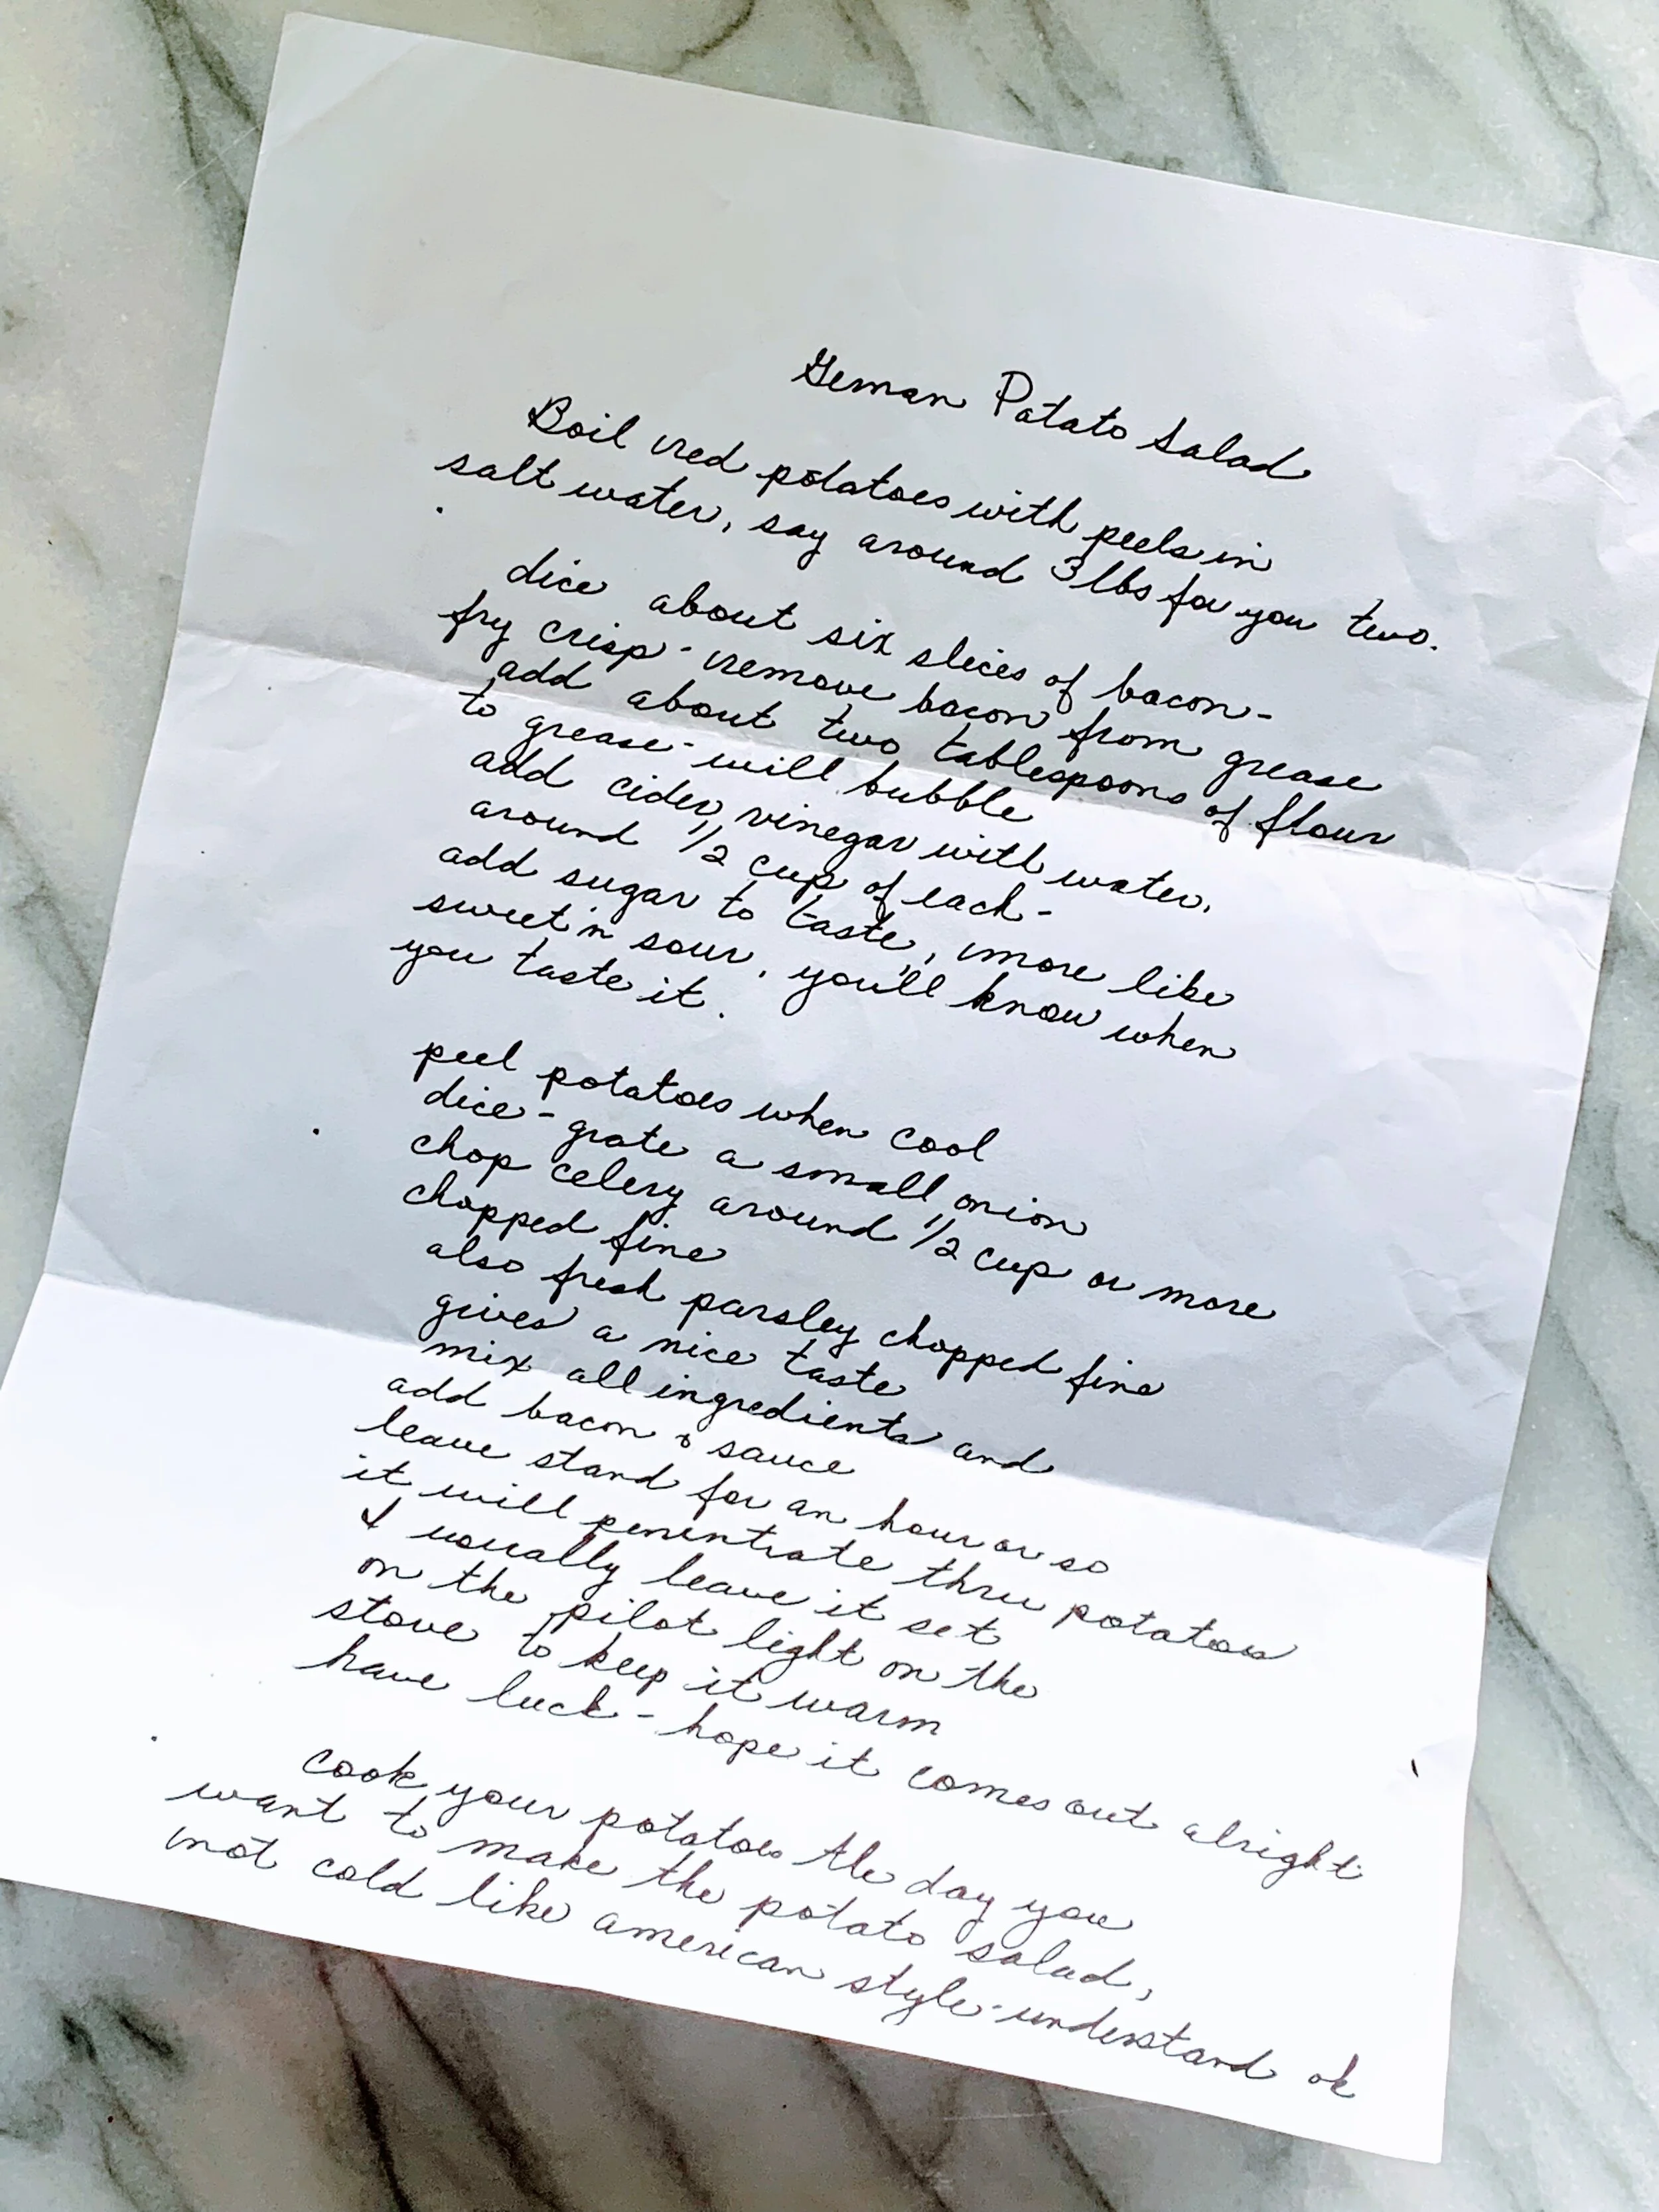 Geman Potato Salad
Boil red potatoes with peels in
salt water, say around 3 lbs for you two.
dice about six slices of bacon-
fry crisp - remove bacon from grease
add about two tablespoons of flour
to grease - will bubble
add cider vinegar with water,
around 1/2 cup of each -
add sugar to taste, more like
sweet 'n sour, you'll know when
you taste it.
peel potatoes when cool
dice - grate a small onion
chop celery around 1/2 cup or more
chopped fine
also fresh parsley chopped fine
gives a nice taste
mix all ingredients and
add bacon & sauce
leave stand for an hour or so
it will penentrate thru potatoes
I usually leave it set
on the pilot light on the
stove to keep it warm
have luck - hope it comes out alright
cook your potatoes the day you
want to make the potato salad,
not cold like american style - understand ok